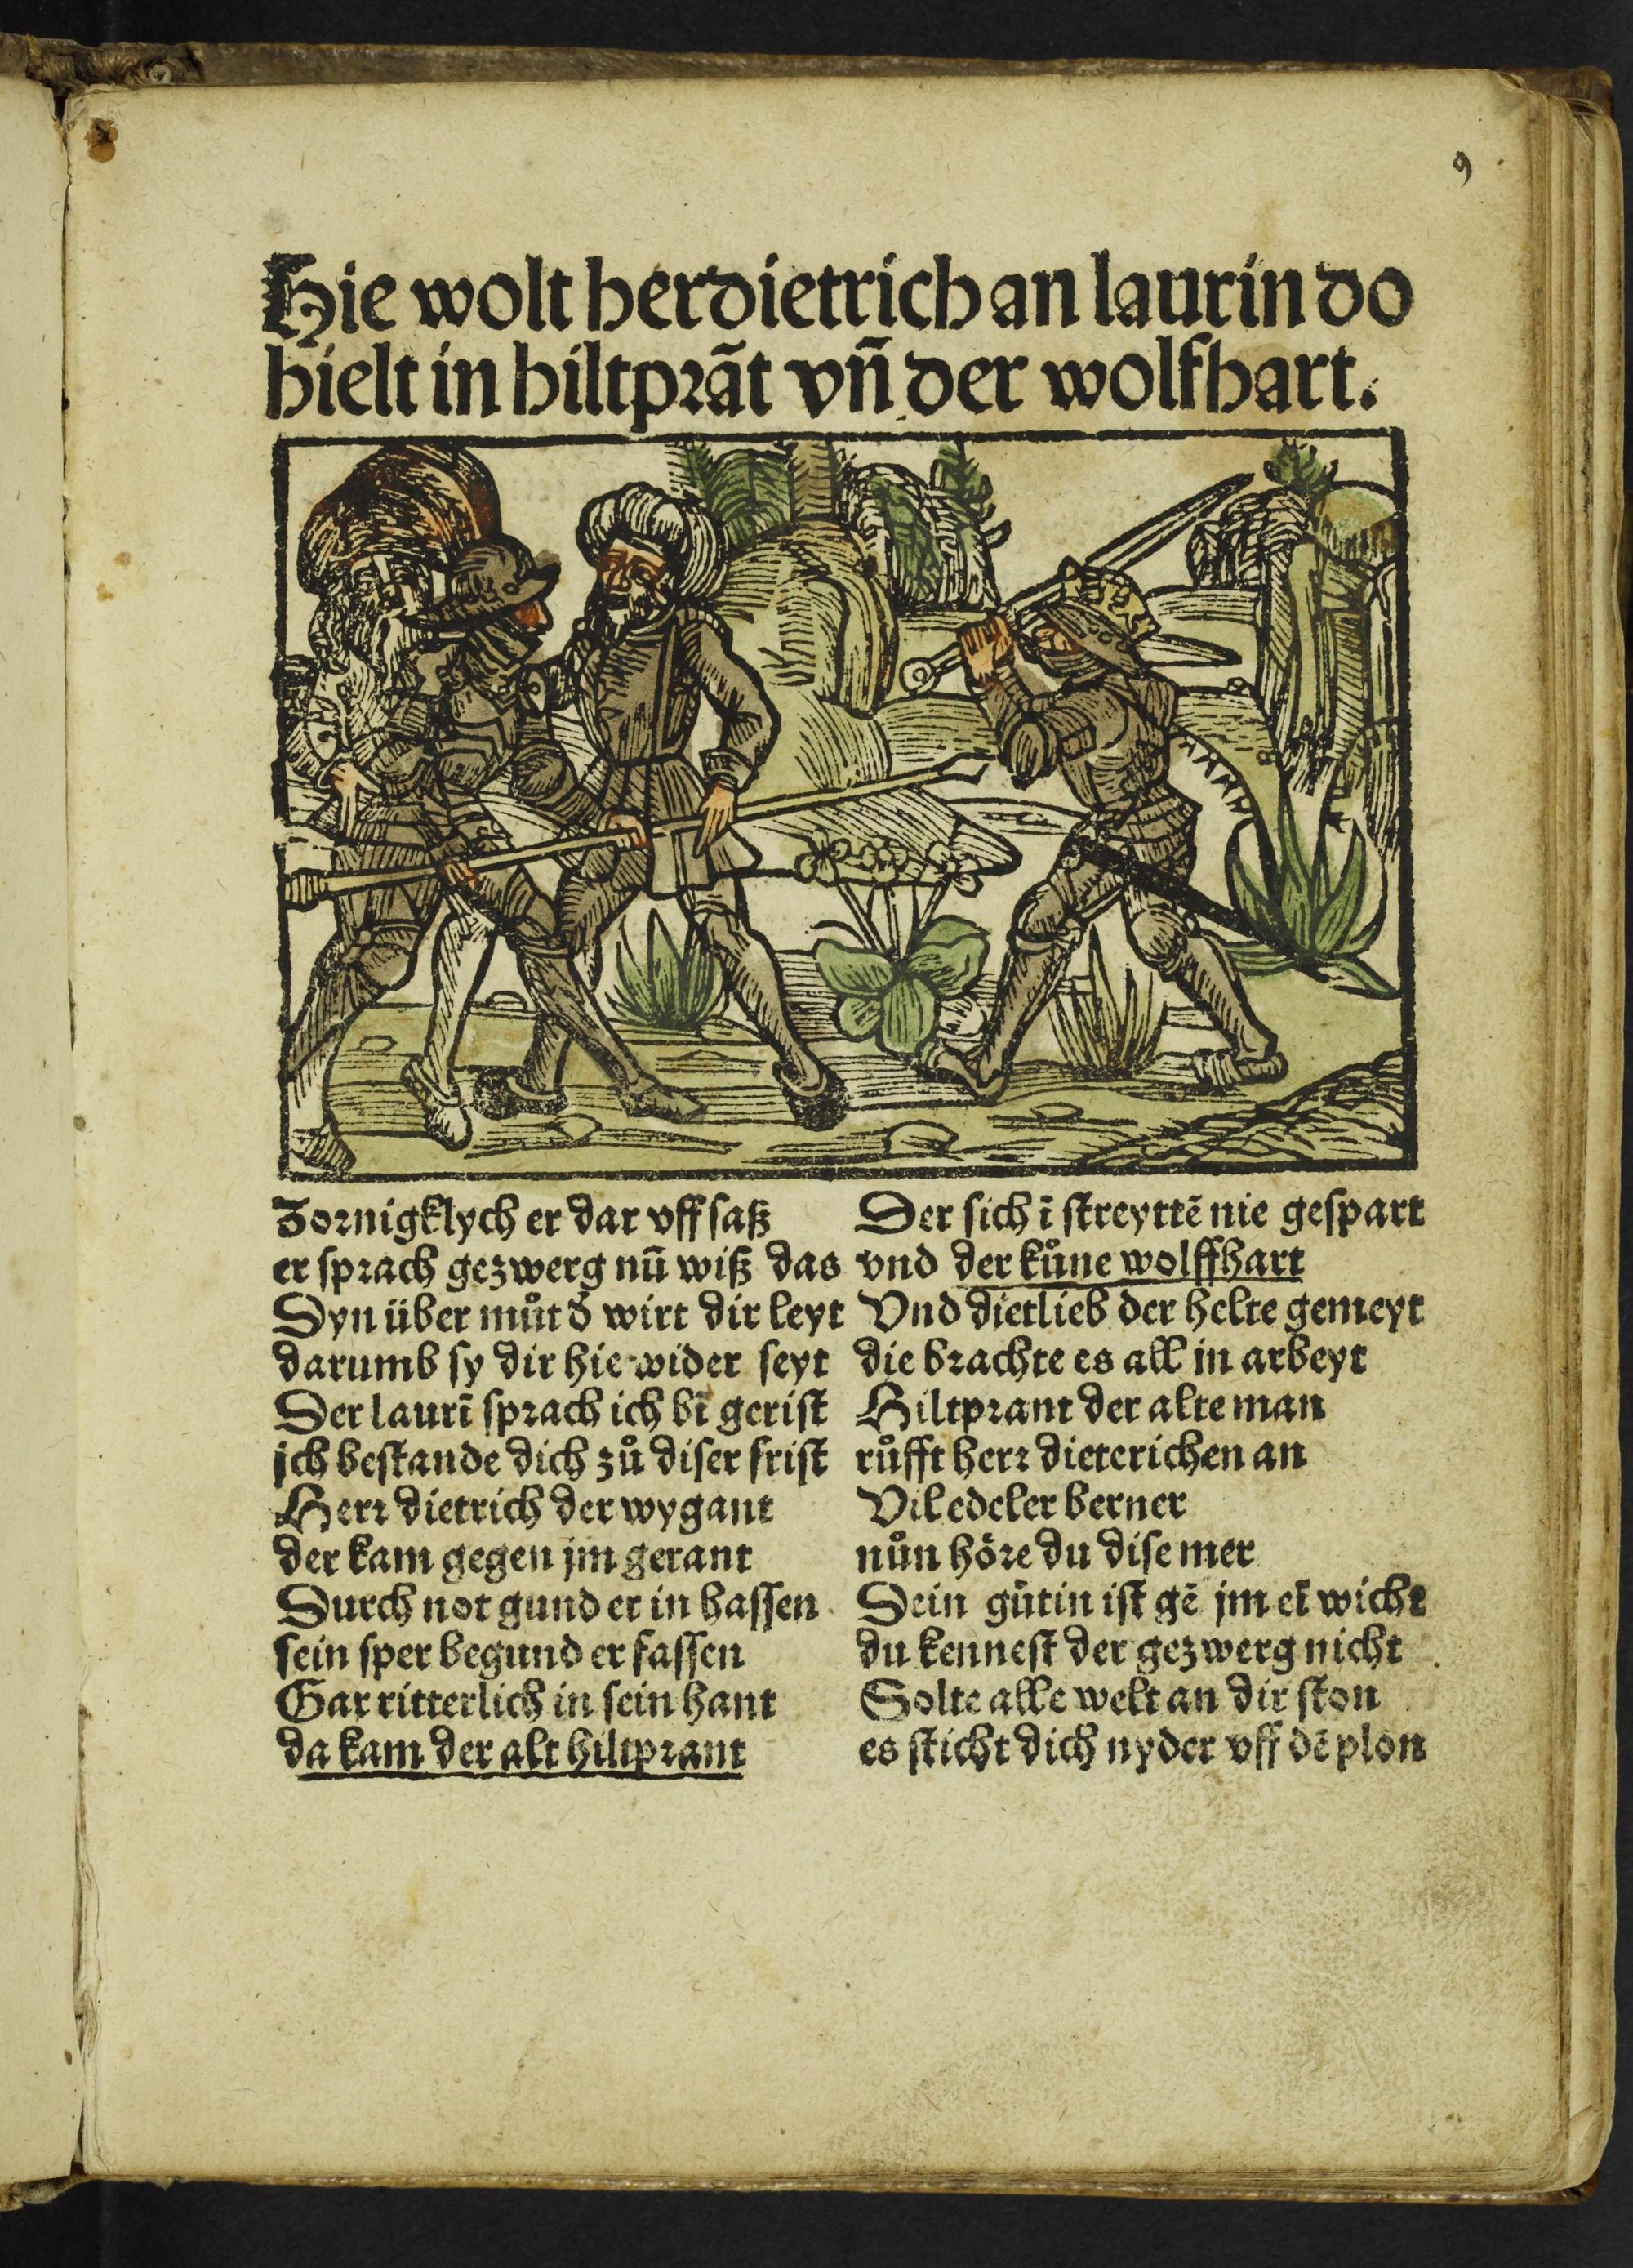 9
Hie wolt her dietrich an laurin do
hielt in hiltprãt vñ der wolfhart.
Zornigklych er dar vff saß
er sprach gezwerg nū wiß das
Dyn über můt d̕ wirt dir leyt
darumb sy dir hie wider seyt
Der laurī sprach ich bī gerist
jch bestande dich zů diser frist
Herr dietrich der wygant
der kam gegen jm gerant
Durch not gund er in hassen
sein sper begund er fassen
Gar ritterlich in sein hant
da kam der alt hiltprant
Der sich ī streyttē nie gespart
vnd der kůne wolffhart
Vnd dietlieb der helte gemeyt
die brachte es all in arbeyt
Hiltprant der alte man
růfft herr dieterichen an
Vil edeler berner
nůn höre du dise mer
Dein gůtin ist gē jm eī wicht
du kennest der gezwerg nicht
Solte alle welt an dir ston
es sticht dich nyder vff dē plon